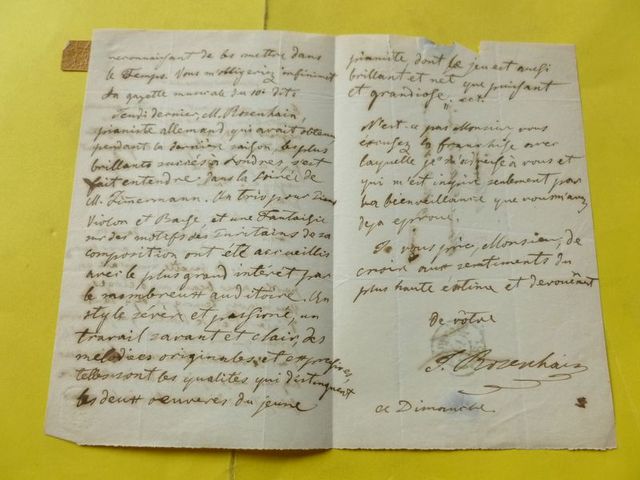 reconnaissant de les mettre dans
le Temps. Vous m'obligeriez infiniment
La gazette musicale du 10: dit:
Jeudi dernier, M. Rosenhain,
pianiste allemand, qui avait obtenu
pendant la dernière saison, les plus
brillants succès à Londres s'est
fait entendre dans la Soirée de
M. Zimermann. Un trio pour Piano
Violon et Basse et une Fantaisie
sur des motifs des Puritains de sa
composition ont été accueillis
avec le plus grand intérêt par
le nombreux auditoire. Un
style sévère et passioné, un
travail savant et clair, des
mélodies originales et expressives,
telles sont les qualités qui distinguent
les deux oeuveres du jeune
pianiste dont le jeu est aussi
brillant et net que puissant
et grandiose. "
N'est-ce pas Monsieur vous
excusez la franchise avec
laquelle je m'adresse à vous et
qui m'est inspiré seulement par
la bienveillance que vous m'avez
deja éprouvé.
Je vous prie, Monsieur, de
croire aux sentiments du
plus haute éstime et devouement
de vôtre
J. Rosenhain
ce Dimanche.